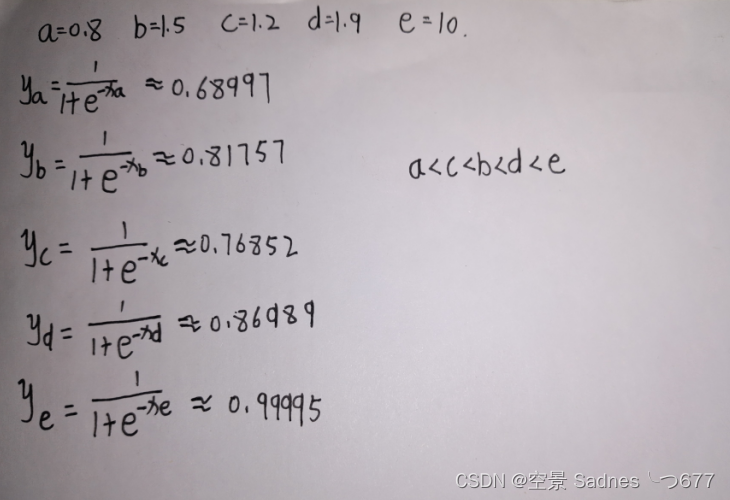 a=0.8 b=1.5 c=1.2 d=1.9 e=10.
ya=1/(1+e^-xa) ≈0.68997
yb=1/(1+e^-xb) ≈0.81757
a<c<b<d<e
yc=1/(1+e^-xc) ≈0.76852
yd=1/(1+e^-xd) ≈0.86989
ye=1/(1+e^-xe) ≈0.99995
CSDN @空景 Sadnes╰つ677